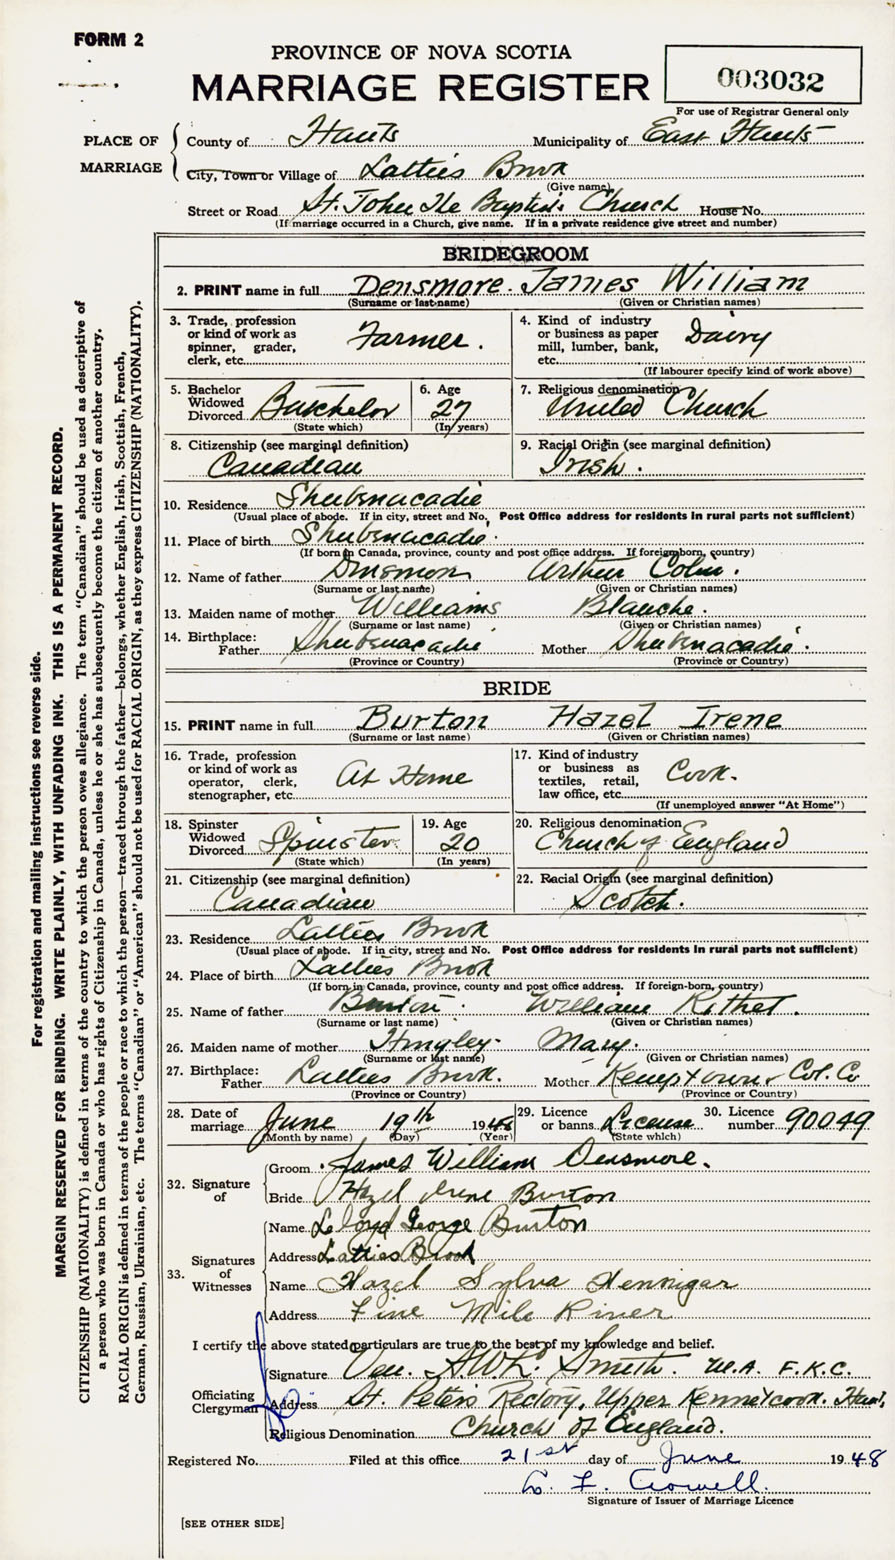 FORM 2
PROVINCE OF NOVA SCOTIA
MARRIAGE REGISTER
003032
For use of Registrar General only
PLACE OF MARRIAGE
County of Hants Municipality of East Hants
City, Town or Village of Latties Brook
(Give name)
Street or Road St. John The Baptist Church House No.
(If marriage occurred in a Church, give name. If in a private residence give street and number)
BRIDEGROOM
2. PRINT name in full Densmore. James William
(Surname or last name) (Given or Christian names)
3. Trade, profession or kind of work as spinner, grader, clerk, etc. Farmer.
4. Kind of industry or business as paper mill, lumber, bank, etc. Dairy
(If labourer specify kind of work above)
5. Bachelor Widowed Divorced Batchelor
(State which)
6. Age 27
(In years)
7. Religious denomination United Church
8. Citizenship (see marginal definition) Canadian
9. Racial Origin (see marginal definition) Irish.
10. Residence Shubenacadie
(Usual place of abode. If in city, street and No. Post Office address for residents in rural parts not sufficient)
11. Place of birth Shubenacadie.
(If born in Canada, province, county and post office address. If foreign born, country)
12. Name of father Dinsmore Arthur Colin.
(Surname or last name) (Given or Christian names)
13. Maiden name of mother Williams Blanche.
(Surname or last name) (Given or Christian names)
14. Birthplace: Father Shubenacadie Mother Shubenacadie.
(Province or Country) (Province or Country)
BRIDE
15. PRINT name in full Burton Hazel Irene
(Surname or last name) (Given or Christian names)
16. Trade, profession or kind of work as operator, clerk, stenographer, etc. At Home
17. Kind of industry or business as textiles, retail, law office, etc. Cook.
(If unemployed answer "At Home")
18. Spinster Widowed Divorced Spinster
(State which)
19. Age 20
(In years)
20. Religious denomination Church of England
21. Citizenship (see marginal definition) Canadian
22. Racial Origin (see marginal definition) Scotch.
23. Residence Latties Brook
(Usual place of abode. If in city, street and No. Post Office address for residents in rural parts not sufficient)
24. Place of birth Latties Brook
(If born in Canada, province, county and post office address. If foreign-born, country)
25. Name of father Burton. William Rithet.
(Surname or last name) (Given or Christian names)
26. Maiden name of mother Hingley. Mary.
(Surname or last name) (Given or Christian names)
27. Birthplace: Father Latties Brook. Mother Kemptown, Col. Co
(Province or Country) (Province or Country)
28. Date of marriage June 19th 1948
(Month by name) (Day) (Year)
29. Licence or banns License
(State which)
30. Licence number 90049
32. Signature of
Groom James William Densmore.
Bride Hazel Irene Burton
33. Signatures of Witnesses
Name Lloyd George Burton
Address Latties Brook
Name Hazel Sylva Hennigar
Address Five Mile River
I certify the above stated particulars are true to the best of my knowledge and belief.
Officiating Clergyman
Signature Ven. A.W.L. Smith. M.A. F.K.C.
Address St. Peter's Rectory, Upper Kennetcook. Hants,
Religious Denomination Church of England.
Registered No. Filed at this office 21st day of June 1948
L. F. Crowell
Signature of Issuer of Marriage Licence
[SEE OTHER SIDE]
For registration and mailing instructions see reverse side.
MARGIN RESERVED FOR BINDING. WRITE PLAINLY, WITH UNFADING INK. THIS IS A PERMANENT RECORD.
CITIZENSHIP (NATIONALITY) is defined in terms of the country to which the person owes allegiance. The term "Canadian" should be used as descriptive of
a person who was born in Canada or who has rights of Citizenship in Canada, unless he or she has subsequently become the citizen of another country.
RACIAL ORIGIN is defined in terms of the people or race to which the person—traced through the father—belongs, whether English, Irish, Scottish, French,
German, Russian, Ukrainian, etc. The terms "Canadian" or "American" should not be used for RACIAL ORIGIN, as they express CITIZENSHIP (NATIONALITY).